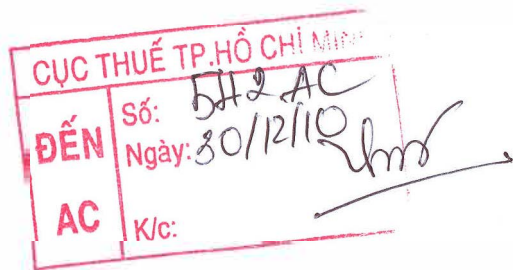 CỤC THUẾ TP.HỒ CHÍ MINH
ĐẾN
AC
Số: AC
Ngày: 30/12/10
K/c: